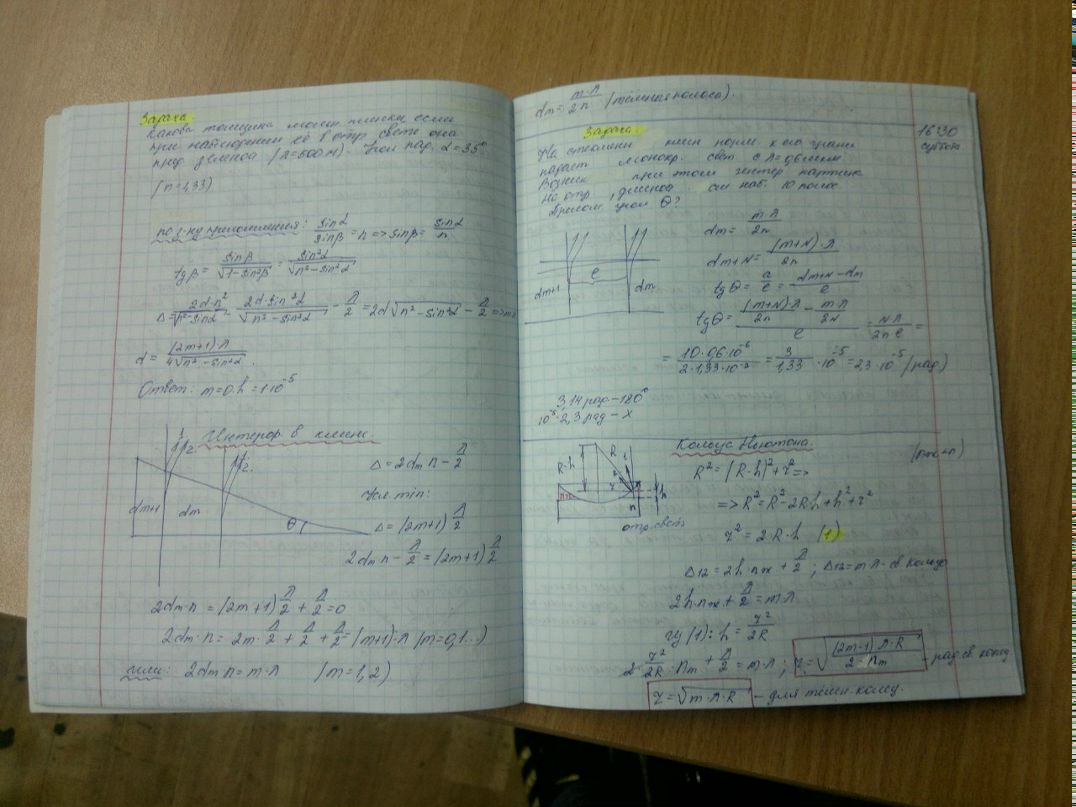 Задача
Какова толщина мыльн. пленки, если
при наблюдении её в отр. свете она
(n=1,33)
по з-ну преломления: sinα/sinβ = n => sinβ = sinα/n
tgβ = sinβ/√(1-sin²β) = sin²α/√(n²-sin²α)
Δ = 2d·n²/√(n²-sinα) - 2d·sin²α/√(n²-sin²α) - λ/2 = 2d√(n²-sin²α) - λ/2 =>
d = (2m+1)·λ/4√(n²-sin²α).
Ответ: m=0. h=1·10⁻⁵
Интерфер. в клине
1 2
1 2
dm+1 dm θ
Δ=2dm n - λ/2
Усл. min:
Δ=(2m+1) λ/2
2dm n - λ/2 = (2m+1) λ/2
2dm·n = (2m+1) λ/2 + λ/2 = 0
2dm·n = 2m·λ/2 + λ/2 + λ/2 = (m+1)·λ (m=0,1...)
или: 2dm n = m·λ (m=1,2)
dm = m·λ/2n (тёмная полоса).
Задача.
16:30
суббота
На стеклян. клин норм. к его грани
падает монохр. свет с λ=
Возник. при этом интер. картина
наб. 10 полос
Преломл. угол θ?
dm+1 ℓ dm
dm = m·λ/2n
dm+N = (m+N)·λ/2n
tgθ = a/ℓ = dm+N - dm/ℓ
tgθ = (m+N)·λ/2n - m·λ/2N / ℓ = Nλ/2n·ℓ =
= 10·0,6·10⁻⁶/2·1,33·10⁻² = 3/1,33 · 10⁻⁵ = 2,3·10⁻⁵ (рад)
3,14 рад - 180°
10⁻⁵·2,3 рад - x
Кольца Ньютона.
R-h R h n
отр. свет
R² = (R-h)² + r² =>
=> R² = R² - 2Rh + h² + r²
r² = 2·R·h (1)
Δ12 = 2h·nж + λ/2 ; Δ12 = mλ - св. кольцо
2h·nж + λ/2 = m·λ
из (1): h = r²/2R
2·r²/2R · nm + λ/2 = m·λ ; r = √((2m-1)·λ·R/2·nm) - рад. св. колец
r = √m·λ·R - для тёмн. колец.